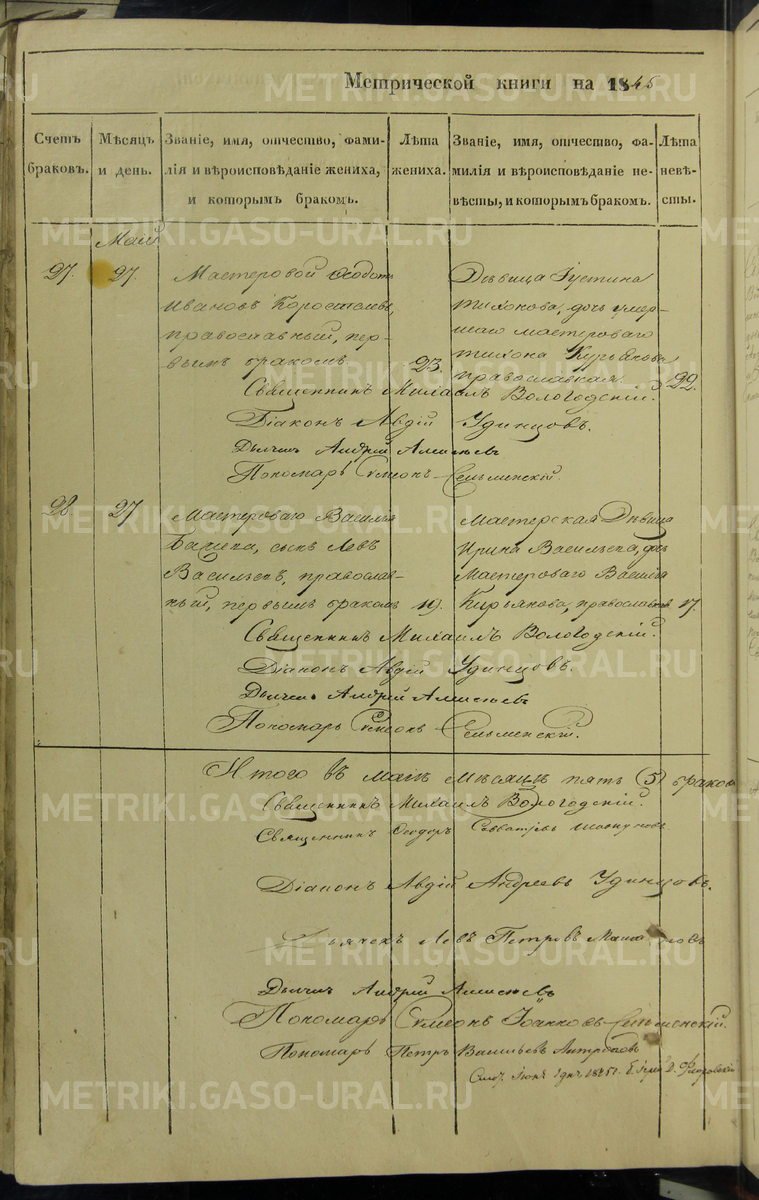 Метрической книги на 1845
Счетъ браковъ.
Мѣсяцъ и день.
Званіе, имя, отчество, фамилія и вѣроисповѣданіе жениха, и которымъ бракомъ.
Лѣта жениха.
Званіе, имя, отчество, фамилія и вѣроисповѣданіе невѣсты, и которымъ бракомъ.
Лѣта невѣсты.
Май
27. 27.
Мастеровой Ѳедотъ
Ивановъ Коростелевъ,
православный, пер-
вымъ бракомъ. 23.
Дѣвица Іустина
Тихонова, дочь умер-
шаго мастероваго
Тихона Курьянова
православная. 22.
Священникъ Михаилъ Вологодскій.
Діаконъ Авдій Удинцовъ.
Дьячекъ Андрей
Пономарь Симеонъ
28. 27
Мастероваго Василія
сынъ Левъ
Васильевъ, православ-
ный, первымъ бракомъ 19.
Мастерская Дѣвица
Ирина Васильева, дочь
Мастероваго Василія
Кирьянова, православная 17.
Священникъ Михаилъ Вологодскій.
Діаконъ Авдій Удинцовъ.
Дьячекъ Андрей
Пономарь Симеонъ
Итого въ маѣ мѣсяцѣ пять (5) браковъ
Священникъ Михаилъ Вологодскій.
Священникъ Ѳеодоръ
Діаконъ Авдій Андреевъ Удинцовъ.
Дьячекъ Левъ Петровъ
Дьячекъ Андрей
Пономарь Симеонъ Іоанновъ
Пономарь Петръ Васильевъ Антроповъ
METRIKI.GASO-URAL.RU